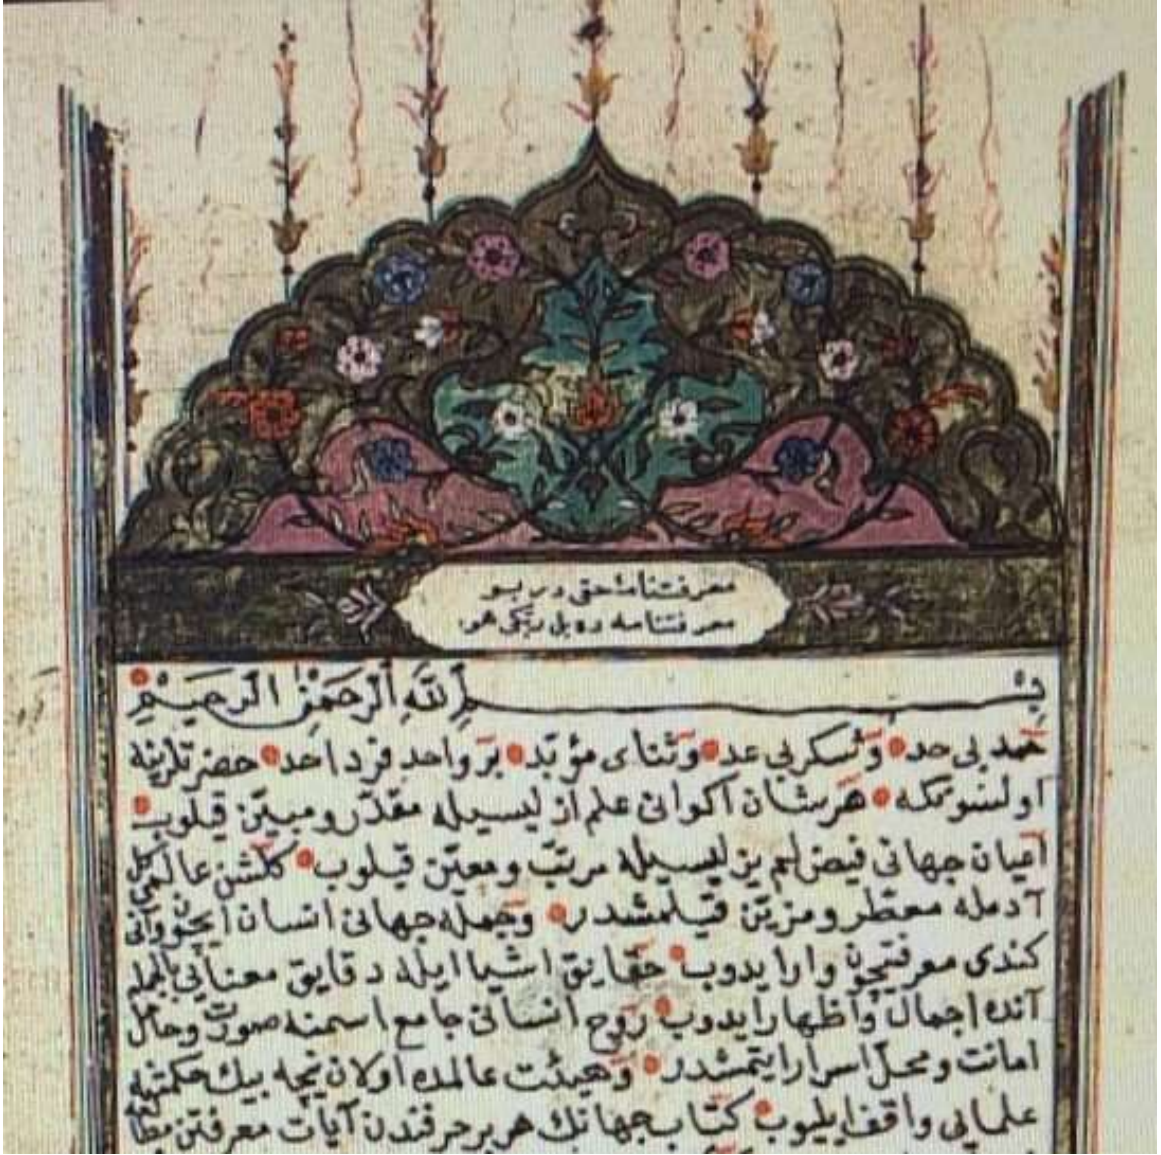 معرفتنامۀ حقی در بو
معرفتنامه ده بل ربکی هو
بِسْمِ اللّٰهِ الرَّحْمٰنِ الرَّحِيمِ
حمد بی حد وشکر بی عد وثنای مؤبد بر واحد فرد احد حضرتلرینه
اولسونکه هر شان اکوانی علم ازلیسیله مقدّر و مبیّن قیلوب
اعیان جهانی فیض لم یزلیسیله مرتب و معیّن قیلوب کلشن عالمی
آدمله معطّر و مزیّن قیلمشدر وجمله جهانی انسان ایچون وانی
کندی معرفتیچون وار ایدوب حقایق اشیا ایله دقایق معنایی بالجمله
آنده اجمال واظهار ایدوب روح انسانی جامع اسمنه صورت وحال
امانت ومحل اسرار ایتمشدر وهیئت عالمده اولان نیچه بیك حکمته
علمایی واقف ایلیوب کتاب جهانك هر بر حرفندن آیات معرفتن